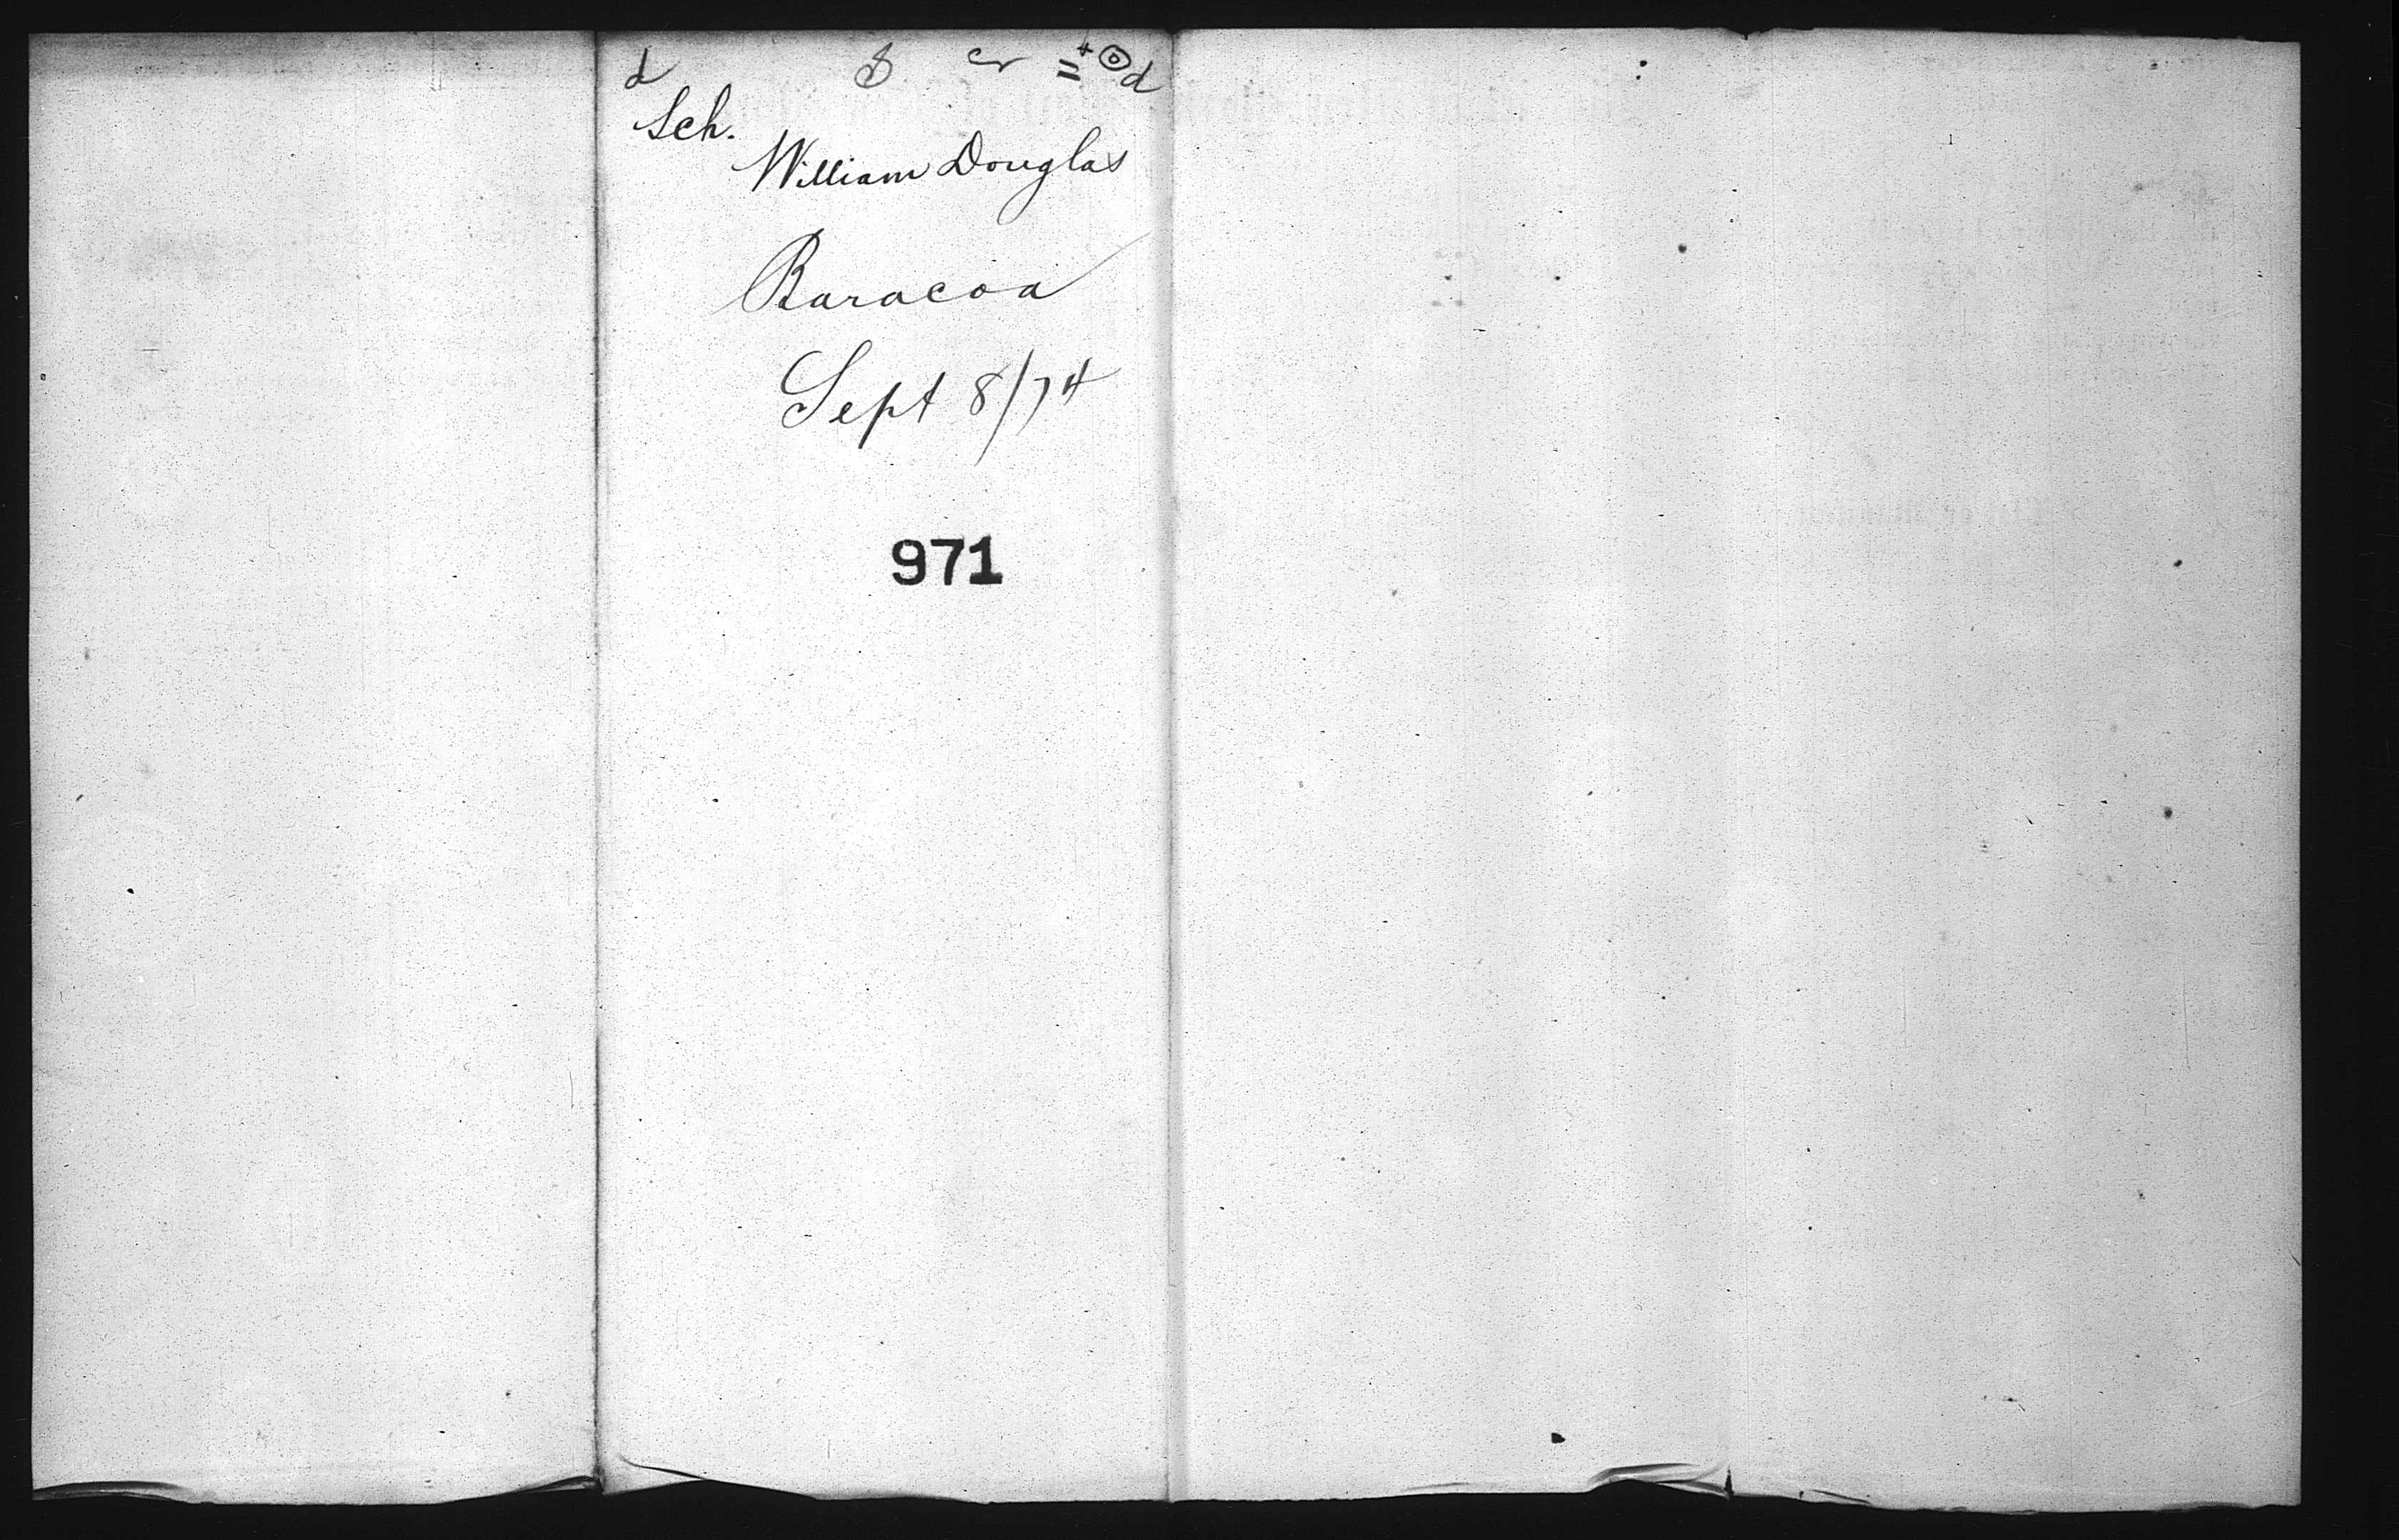 d
Sch.
William Douglas
Baracoa
Sept 8/74
971